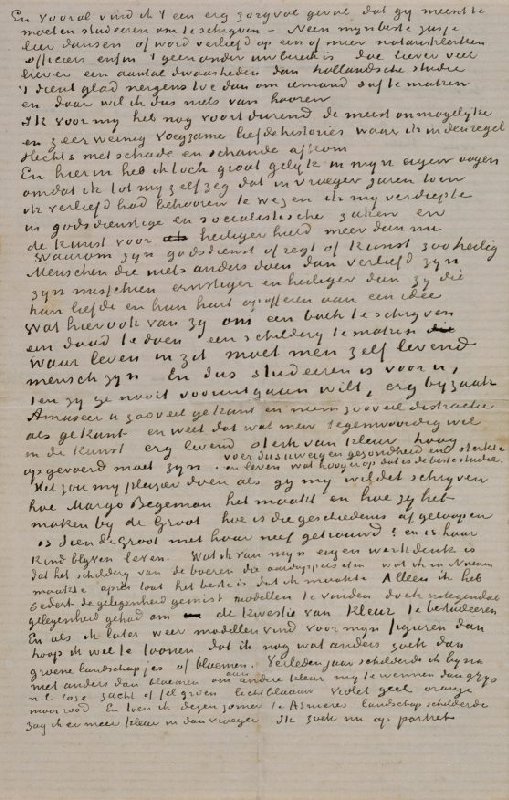 En vooral vind ik 't een erg zorgvol geval dat gij meent te
moeten studeeren om te schrijven. Neen mijn beste zusje
leer dansen of word verliefd op een of meer notarisklerken
officiers enfin 't geen onder uw bereik is doe liever veel
liever een aantal dwaasheden dan hollandsche studie
't dient glad nergens toe dan om iemand suf te maken
en daar wil ik dus niets van hooren
Ik voor mij heb nog voortdurend de meest onmogelijke
en zeer weinig voegzame liefdehistories waar ik in den regel
slechts met schade en schande afkom
En hierin heb ik toch groot gelijk in mijn eigen oogen
omdat ik tot mijzelf zeg dat in vroeger jaren toen
ik verliefd had behooren te wezen ik mij verdiepte
in godsdienstige en socialistische zaken en
de kunst voor heiliger hield meer dan nu
Waarom zijn godsdienst of regt of kunst zoo heilig
Menschen die niets anders doen dan verliefd zijn
zijn misschien ernstiger en heiliger dan zij die
hun liefde en hun hart opofferen aan een idee
Wat hiervook van zij om een boek te schrijven
een daad te doen een schilderij te maken
waar leven in zit moet men zelf levend
mensch zijn En dus studeeren is voor u,
ten zij ge nooit vooruitgaan wilt, erg bijzaak
Amuseer u zooveel ge kunt en neem zooveel distracties
als ge kunt en weet dat wat men tegenwoordig wil
in de kunst erg levend sterk van kleur hoog
opgevoerd moet zijn. voer dus uw eigen gezondheid en sterkte
en leven wat hooger op dat is de beste studie.
Het zou mij plezier doen als gij mij wildet schrijven
hoe Margo Begeman het maakt en hoe zij het
maken bij de Groot hoe is die geschiedenis afgeloopen
is Sien de Groot met haar neef getrouwd? en is haar
kind blijven leven. Wat ik van mijn eigen werk denk is
dat het schilderij van de boeren die aardappels eten wat ik in Nuenen
maakte après tout het beste is dat ik maakte Alleen ik heb
sedert de gelegenheid gemist modellen te vinden doch integendeel
gelegenheid gehad om de kwestie van kleur te bestudeeren
En als ik later weer modellen vind voor mijn figuren dan
hoop ik wel te toonen dat ik nog wat anders zoek dan
groene landschapjes of bloemen. Verleden jaar schilderde ik bijna
niet anders dan bloemen om aan andere kleur mij te wennen dan grijs
n.l. rose zacht of fel groen licht blaauw violet geel oranje
mooi rood En toen ik dezen zomer te Asnieres landschap schilderde
zag ik er meer kleur in dan vroeger Ik zoek nu op portret